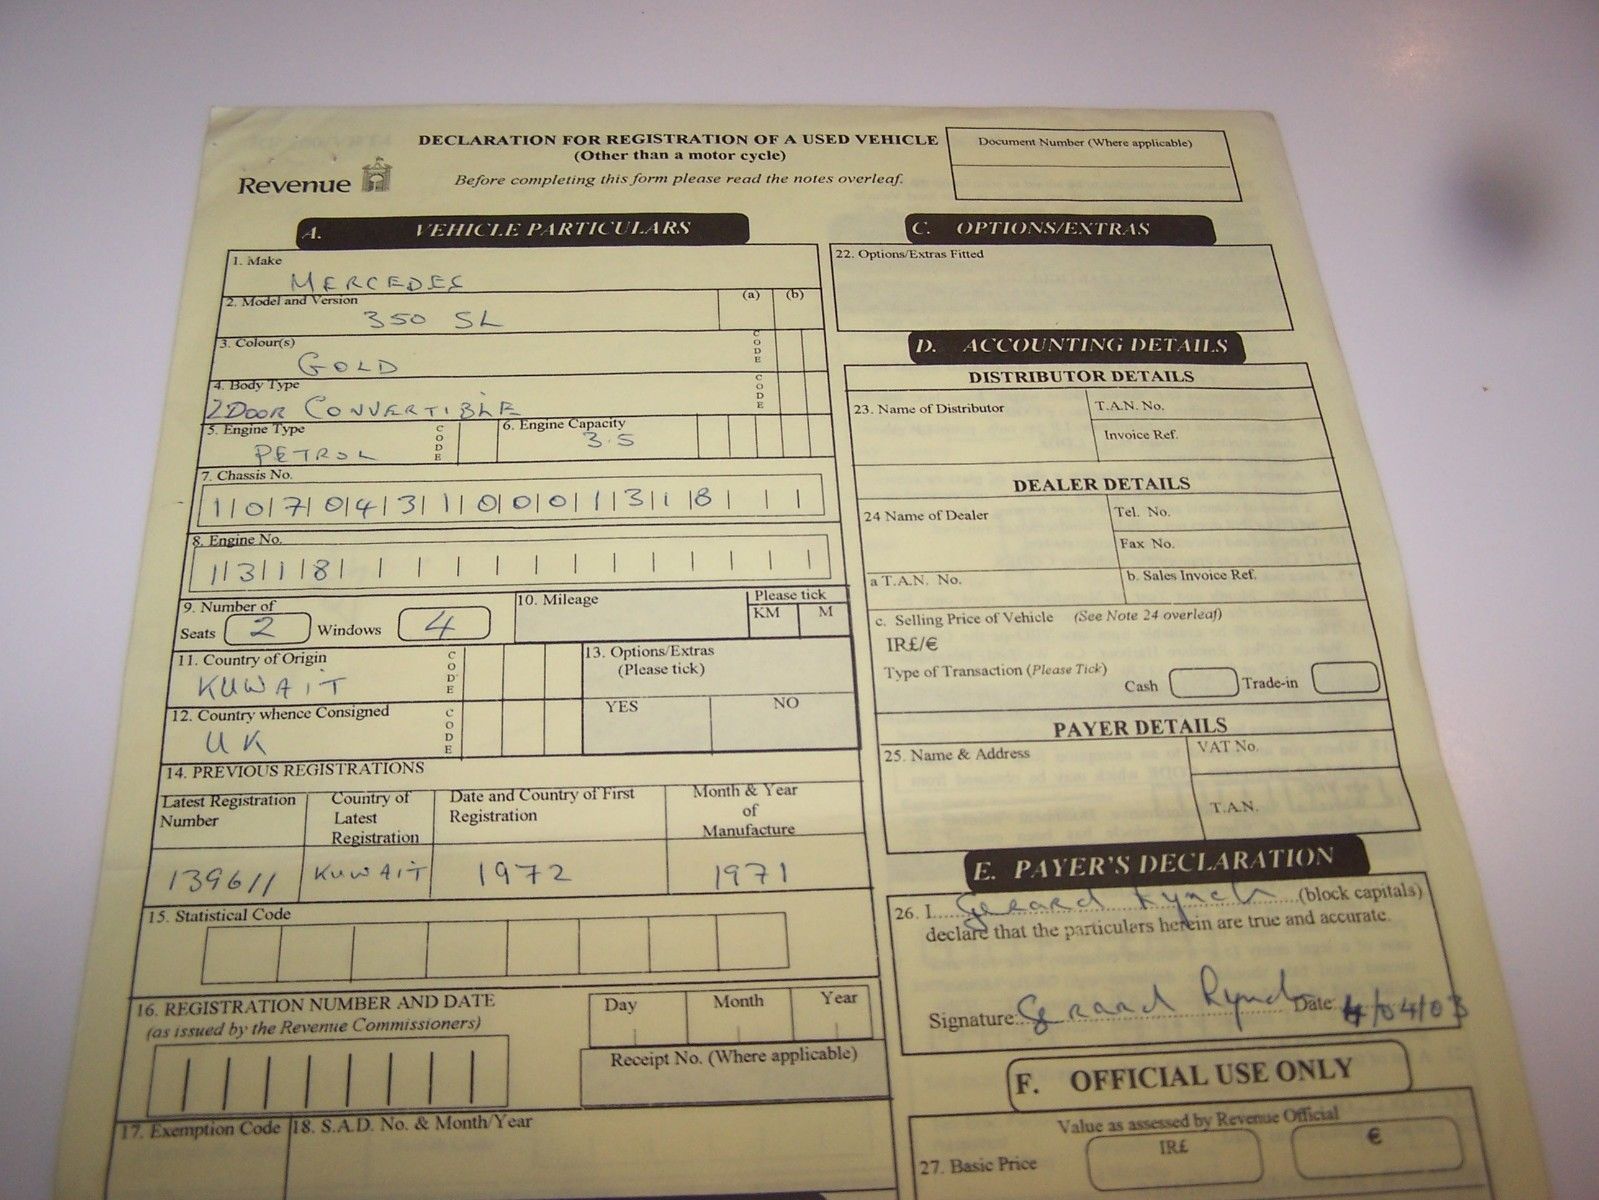 DECLARATION FOR REGISTRATION OF A USED VEHICLE
(Other than a motor cycle)
Revenue
Before completing this form please read the notes overleaf.
Document Number (Where applicable)
A. VEHICLE PARTICULARS
1. Make
MERCEDES
2. Model and Version
(a) (b)
350 SL
3. Colour(s)
CODE
GOLD
4. Body Type
CODE
2DOOR CONVERTIBLE
5. Engine Type
CODE
PETROL
6. Engine Capacity
3.5
7. Chassis No.
10704310001318
8. Engine No.
1318
9. Number of
Seats 2 Windows 4
10. Mileage
Please tick
KM M
11. Country of Origin
CODE
KUWAIT
12. Country whence Consigned
CODE
UK
13. Options/Extras
(Please tick)
YES NO
14. PREVIOUS REGISTRATIONS
Latest Registration
Number
Country of
Latest
Registration
Date and Country of First
Registration
Month & Year
of
Manufacture
139611 KUWAIT 1972 1971
15. Statistical Code
16. REGISTRATION NUMBER AND DATE
(as issued by the Revenue Commissioners)
Day Month Year
Receipt No. (Where applicable)
17. Exemption Code
18. S.A.D. No. & Month/Year
C. OPTIONS/EXTRAS
22. Options/Extras Fitted
D. ACCOUNTING DETAILS
DISTRIBUTOR DETAILS
23. Name of Distributor
T.A.N. No.
Invoice Ref.
DEALER DETAILS
24 Name of Dealer
Tel. No.
Fax No.
a T.A.N. No.
b. Sales Invoice Ref.
c. Selling Price of Vehicle (See Note 24 overleaf)
IR£/€
Type of Transaction (Please Tick)
Cash Trade-in
PAYER DETAILS
25. Name & Address
VAT No.
T.A.N.
E. PAYER'S DECLARATION
26. I Gerard Lynch (block capitals)
declare that the particulars herein are true and accurate.
Signature: Gerard Lynch Date 4/04/03
F. OFFICIAL USE ONLY
Value as assessed by Revenue Official
IR£ €
27. Basic Price